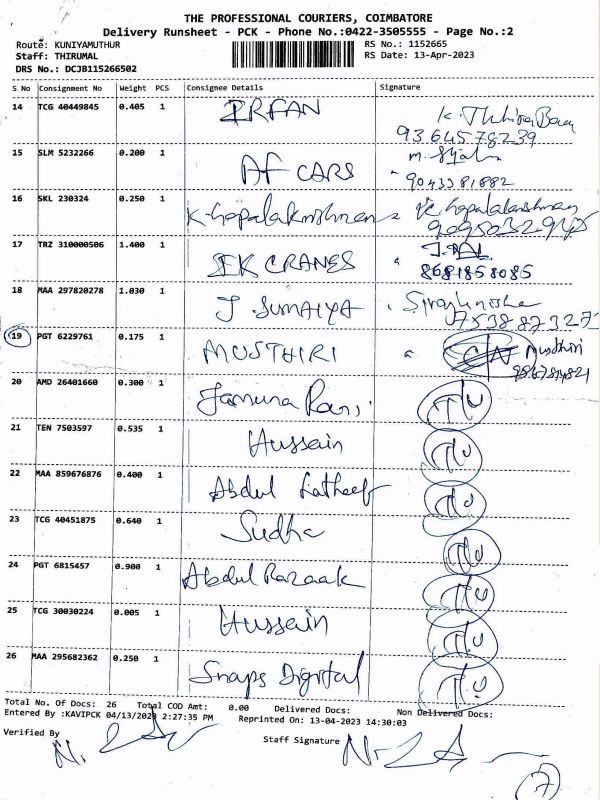 THE PROFESSIONAL COURIERS, COIMBATORE
Delivery Runsheet - PCK - Phone No.:0422-3505555 - Page No.:2
Route: KUNIYAMUTHUR
RS No.: 1152665
Staff: THIRUMAL
RS Date: 13-Apr-2023
DRS No.: DCJB115266502
S No Consignment No Weight PCS Consignee Details Signature
14 TCG 40449845 0.405 1 IRFAN
9364578239
15 SLM 5232266 0.200 1 AF CARS
9043381882
16 SKL 230324 0.250 1 K. Gopalakrishnan
17 TRZ 310000506 1.400 1 SK CRANES
8681858085
18 MAA 297820278 1.030 1 J. SUMAIYA
7538873273
19 PGT 6229761 0.175 1 MUSTHIRI Musthiri
20 AMD 26401660 0.300 1 Jamuna Rani
21 TEN 7503597 0.535 1 Hussain
22 MAA 859676876 0.400 1 Abdul Latheef
23 TCG 40451875 0.640 1 Sudha
24 PGT 6815457 0.900 1 Abdul Razaak
25 TCG 30030224 0.005 1 Hussain
26 MAA 295682362 0.250 1 Snaps Digital
Total No. Of Docs: 26 Total COD Amt: 0.00 Delivered Docs: Non Delivered Docs:
Entered By :KAVIPCK 04/13/2023 2:27:35 PM Reprinted On: 13-04-2023 14:30:03
Verified By
Staff Signature
7